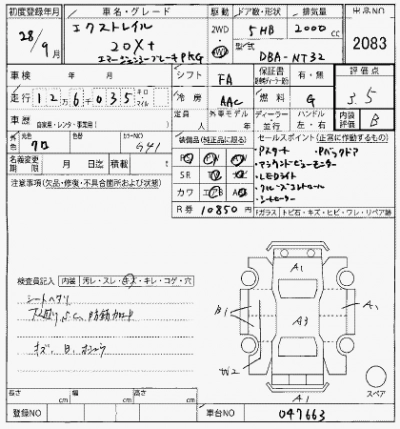 初度登録年月 車名・グレード 駆動 ドア数・形状 排気量 出品NO
28/9月 エクストレイル 2WD 5HB 2000cc 2083
20X+ 型式
エマージェンシーブレーキPKG DBA-NT32
車検 年 月 シフト FA 保証書 有・無 評価点
走行 12万6千035 キロ マイル 冷房 AAC 燃料 G 3.5
車歴 自家用・レンタ・事業用( ) 定員 人 外車モデル 年 ディーラー 並行 ハンドル 左・右 内装評価 B
色 クロ カラーNO G41 装備品(純正品に限る) セールスポイント(正常に作動するもの)
名義変更期限 月 日迄 積載 t
SR
カワ
R券 10850円
Pスタート Pバックドア
アラウンドビューモニター
LEDライト
クルーズコントロール
シートヒーター
Fガラス トビ石・キズ・ヒビ・ワレ・リペア跡
注意事項(欠品・修復・不具合箇所および状態)
検査員記入 内装 汚レ・スレ・キズ・キレ・コゲ・穴
シートヘタリ
A1
A3
A1
スペア
長さ cm 幅 cm 高さ cm
登録NO 車台NO 047663